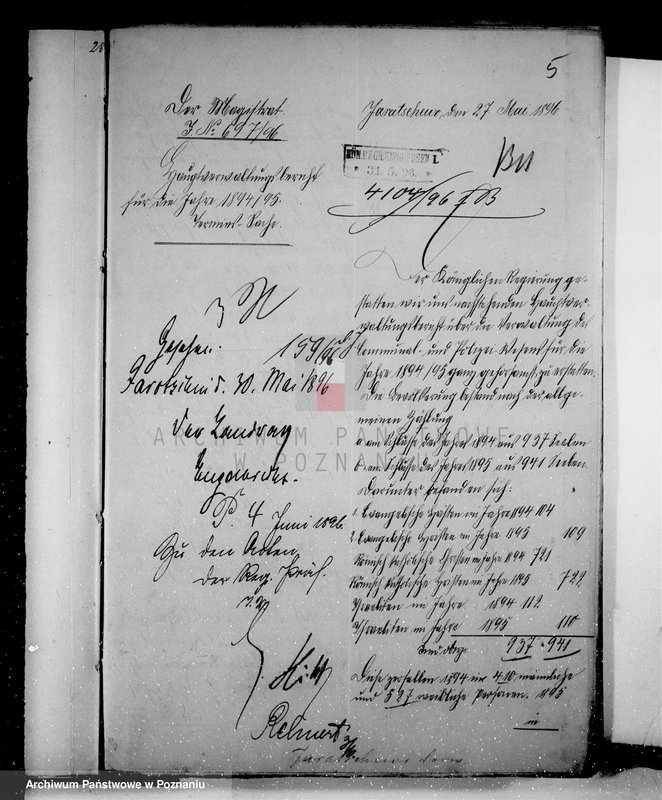 5
Der Magistrat.
J. No 697/96
Hauptverwaltungsbericht
für die Jahre 1894/95.
Termins-Sache.
Jaratschewo, den 27 Mai 1896
31. 5. 96.
4104/96 I B
Der Königlichen Regierung ge-
statten wir uns nachstehenden Hauptver-
waltungsbericht über die Verwaltung des
Communal- und Polizei Wesens für die
Jahre 1894/95 ganz gehorsamst zu erstatten.
Die Bevölkerung bestand nach der allge-
meinen Zählung
a. am Schlusse des Jahres 1894 aus 937 Seelen
b. am Schlusse des Jahres 1895 aus 941 Seelen.
Darunter befanden sich:
1. Evangelische Christen im Jahre 1894 104
2. Evangelische Christen im Jahre 1895 109
Römisch katholische Christen im Jahre 1894 721
Römisch katholische Christen im Jahre 1895 722
Israeliten im Jahre 1894 112
Israeliten im Jahre 1895 110
wie oben 937 941
Diese zerfallen 1894 in 410 männliche
und 527 weibliche Personen. 1895
in
Gesehen. 159/96
Jarotschin d. 30. Mai 1896
Der Landrath
Engelbrecht.
P. 4 Juni 1896
Zu den Akten
Der Reg. Präs.
I. V.
ARCHIWUM PAŃSTWOWE
W POZNANIU
Archiwum Państwowe w Poznaniu